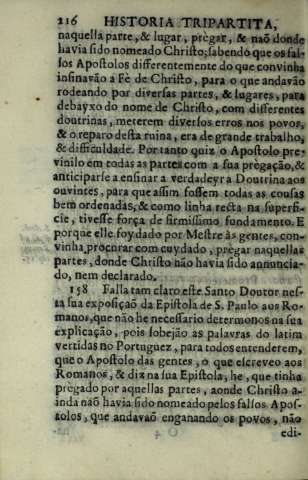 216 HISTORIA TRIPARTITA,
naquella parte, & lugar, prègar, & naõ donde
havia sido nomeado Christo; sabendo que os fal-
sos Apostolos differentemente do que convinha
insinavão a Fè de Christo, para o que andavão
rodeando por diversas partes, & lugares, para
debayxo do nome de Christo, com differentes
doutrinas, meterem diversos erros nos povos,
& o reparo desta ruina, era de grande trabalho,
& difficuldade. Por tanto quiz o Apostolo pre-
venilo em todas as partes com a sua prègação, &
anticiparse a ensinar a verdadeyra Doutrina aos
ouvintes, para que assim fossem todas as cousas
bem ordenadas, & como linha recta na superfi-
cie, tivesse força de firmissimo fundamento. E
porque elle foy dado por Mestre às gentes, con-
vinha procurar com cuydado, prègar naquellas
partes, donde Christo não havia sido annuncia-
do, nem declarado.
158 Falla tam claro este Santo Doutor nes-
ta sua exposição da Epistola de S. Paulo aos Ro-
manos, que não he necessario determonos na sua
explicação, pois sobejão as palavras do latim
vertidas no Portuguez, para todos entenderem,
que o Apostolo das gentes, o que escreveo aos
Romanos, & diz na sua Epistola, he, que tinha
prègado por aquellas partes, aonde Christo a-
inda naõ havia sido nomeado pelos falsos Apos-
tolos, que andavaõ enganando os povos, não
edi-